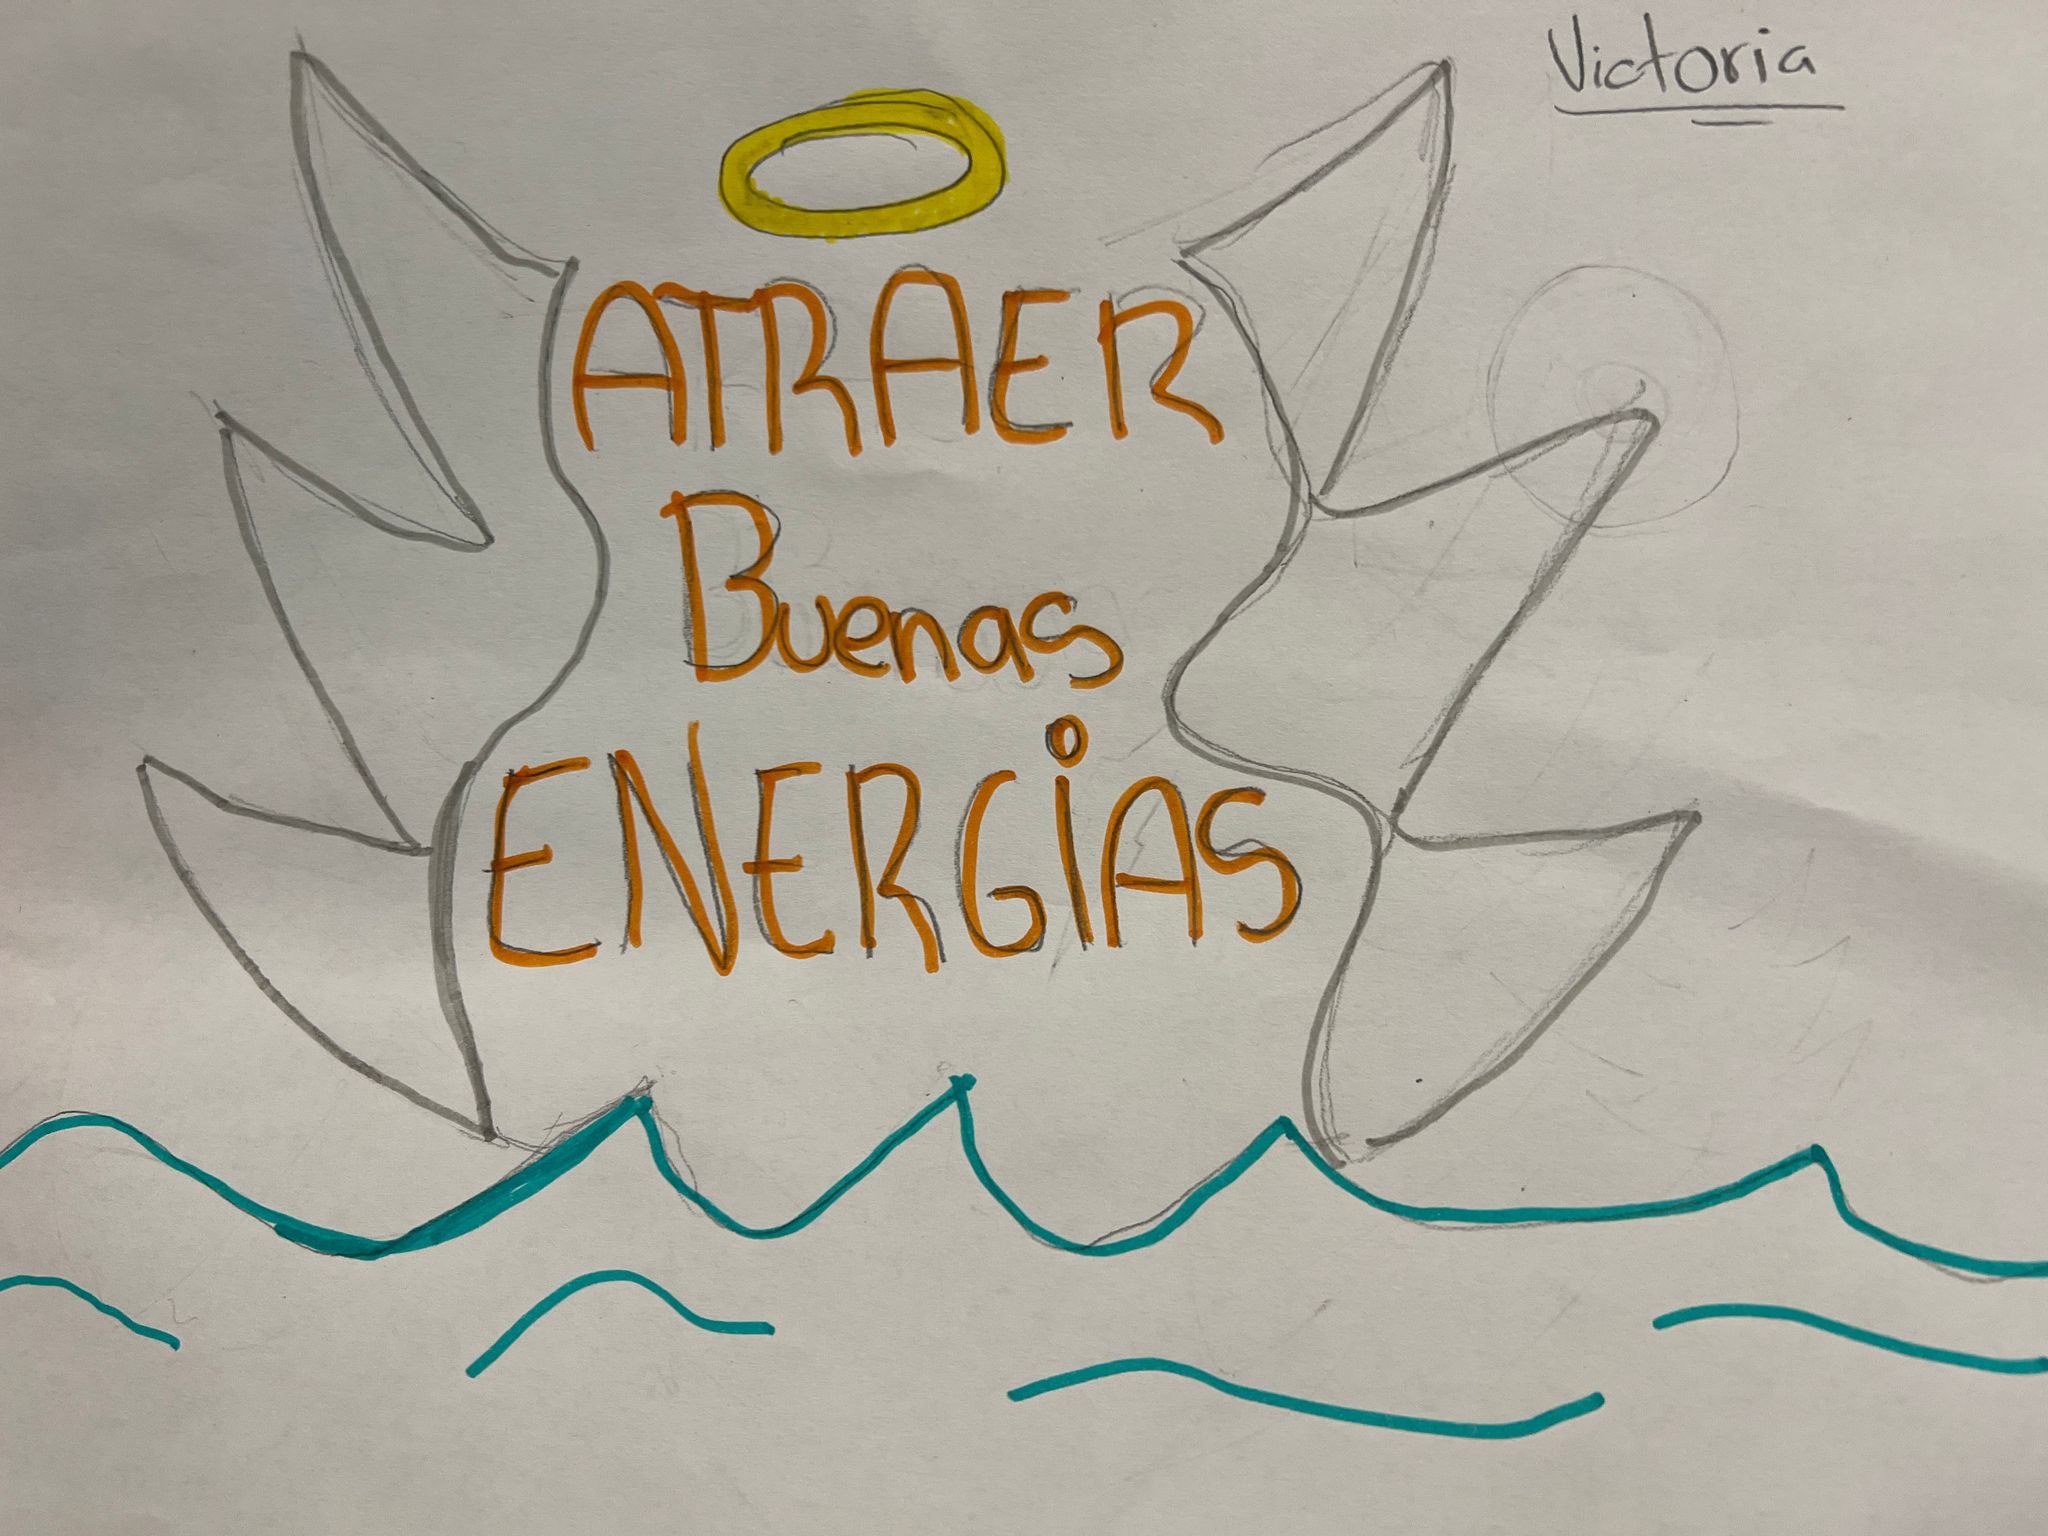 Victoria
ATRAER
Buenas
ENERGiAS